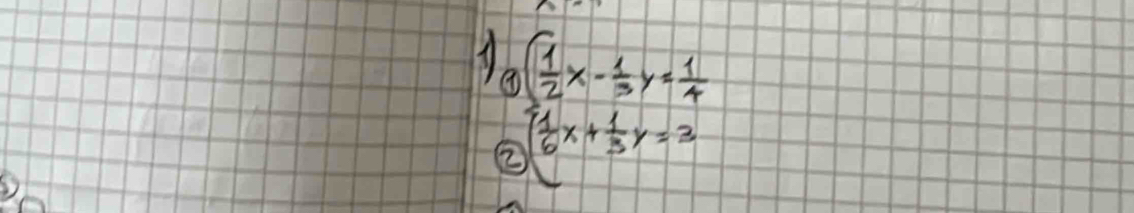 1) ① 1/2 x - 1/3 y = 1/4
② 1/6 x + 1/3 y = 3